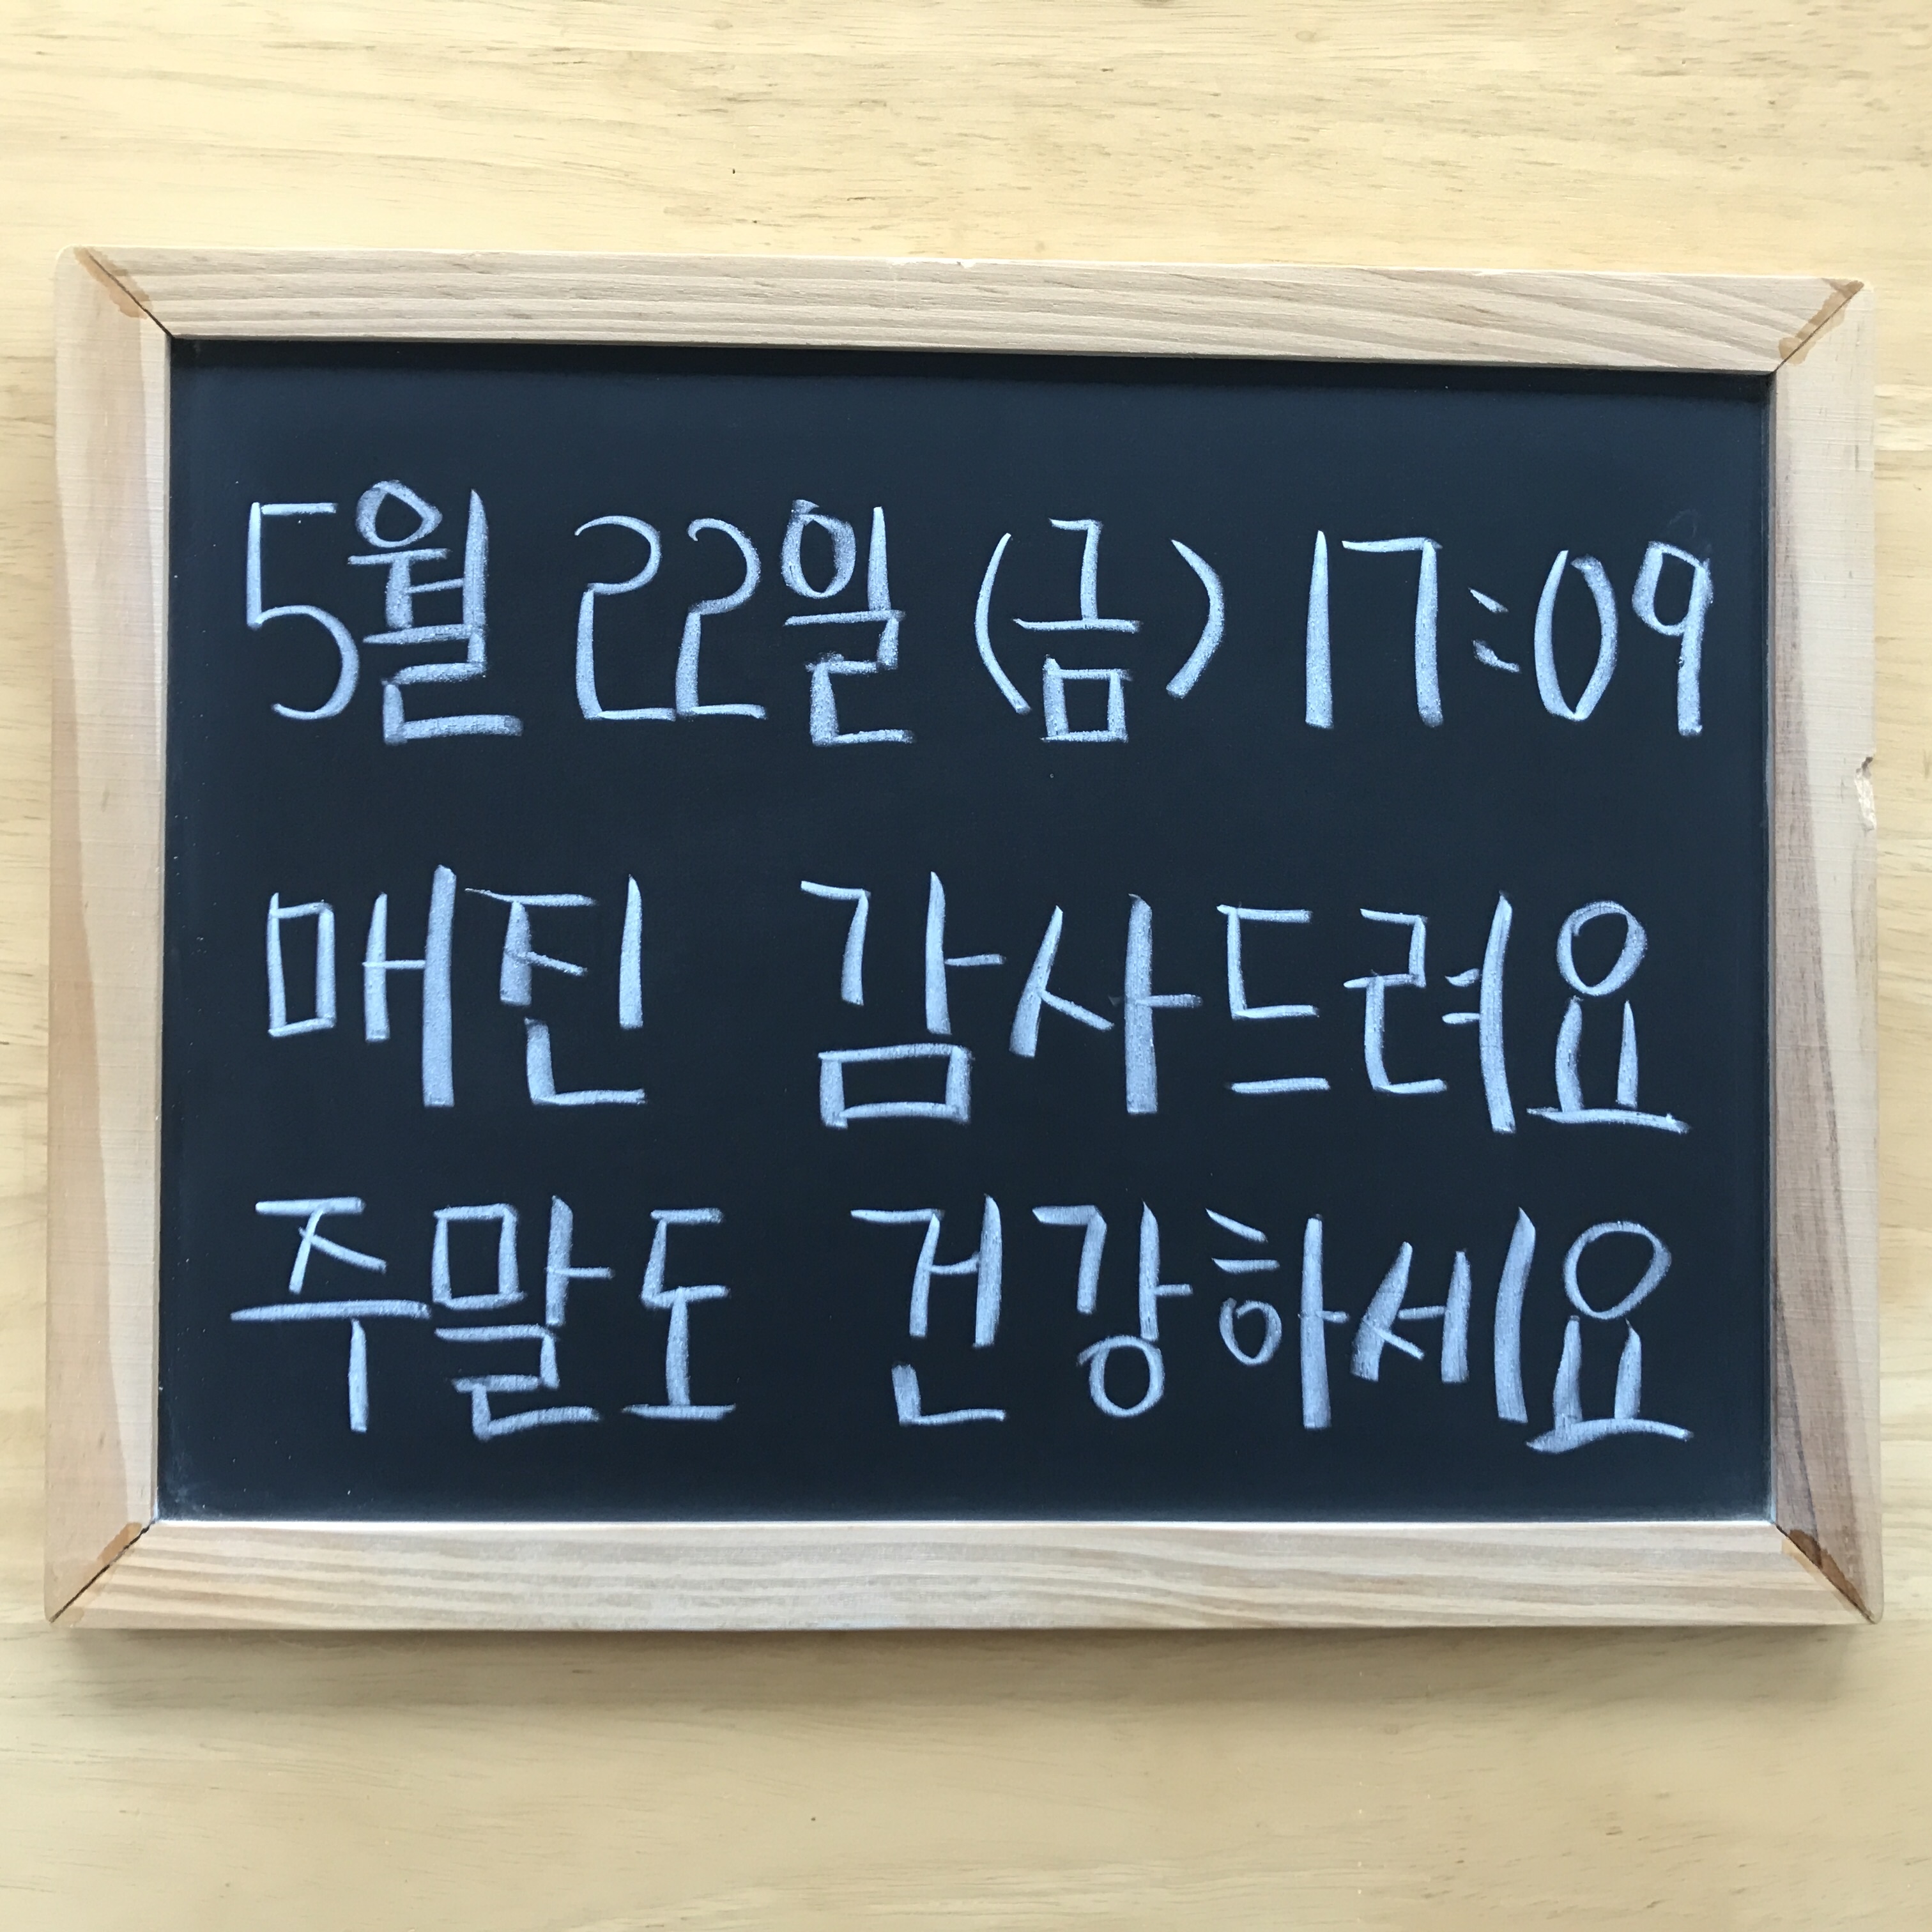 5월 22일 (금) 17:09
매진 감사드려요
주말도 건강하세요